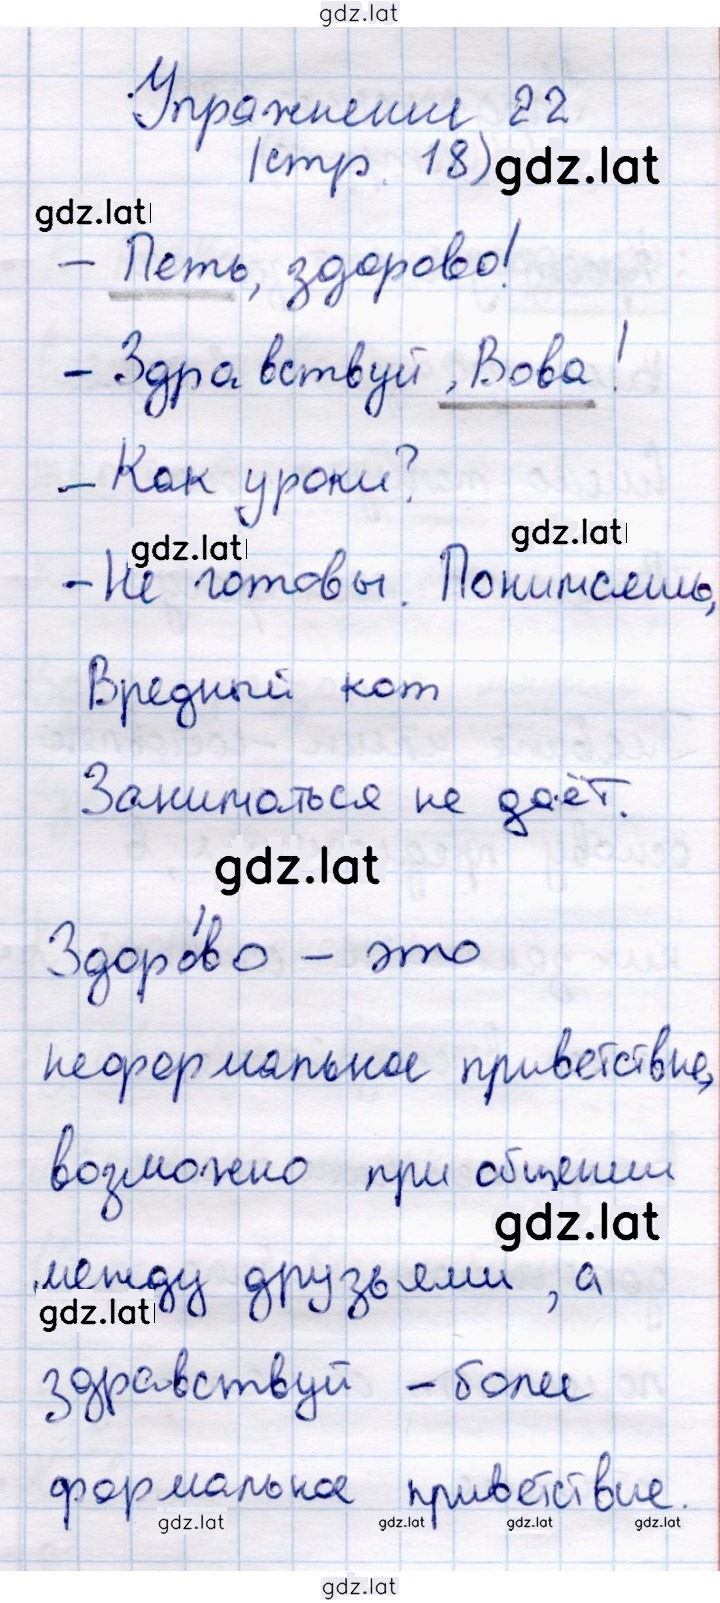 gdz.lat
Упражнение 22
(стр. 18) gdz.lat
gdz.lat
- Петь, здорово!
- Здравствуй, Вова!
- Как уроки?
gdz.lat gdz.lat
- Не готовы. Понимаешь,
Вредный кот
Заниматься не даёт.
gdz.lat
Здоро́во - это
неформальное приветствие,
возможно при общении
gdz.lat
между друзьями, а
gdz.lat
здравствуй - более
формальное приветствие.
gdz.lat gdz.lat gdz.lat gdz.lat
gdz.lat